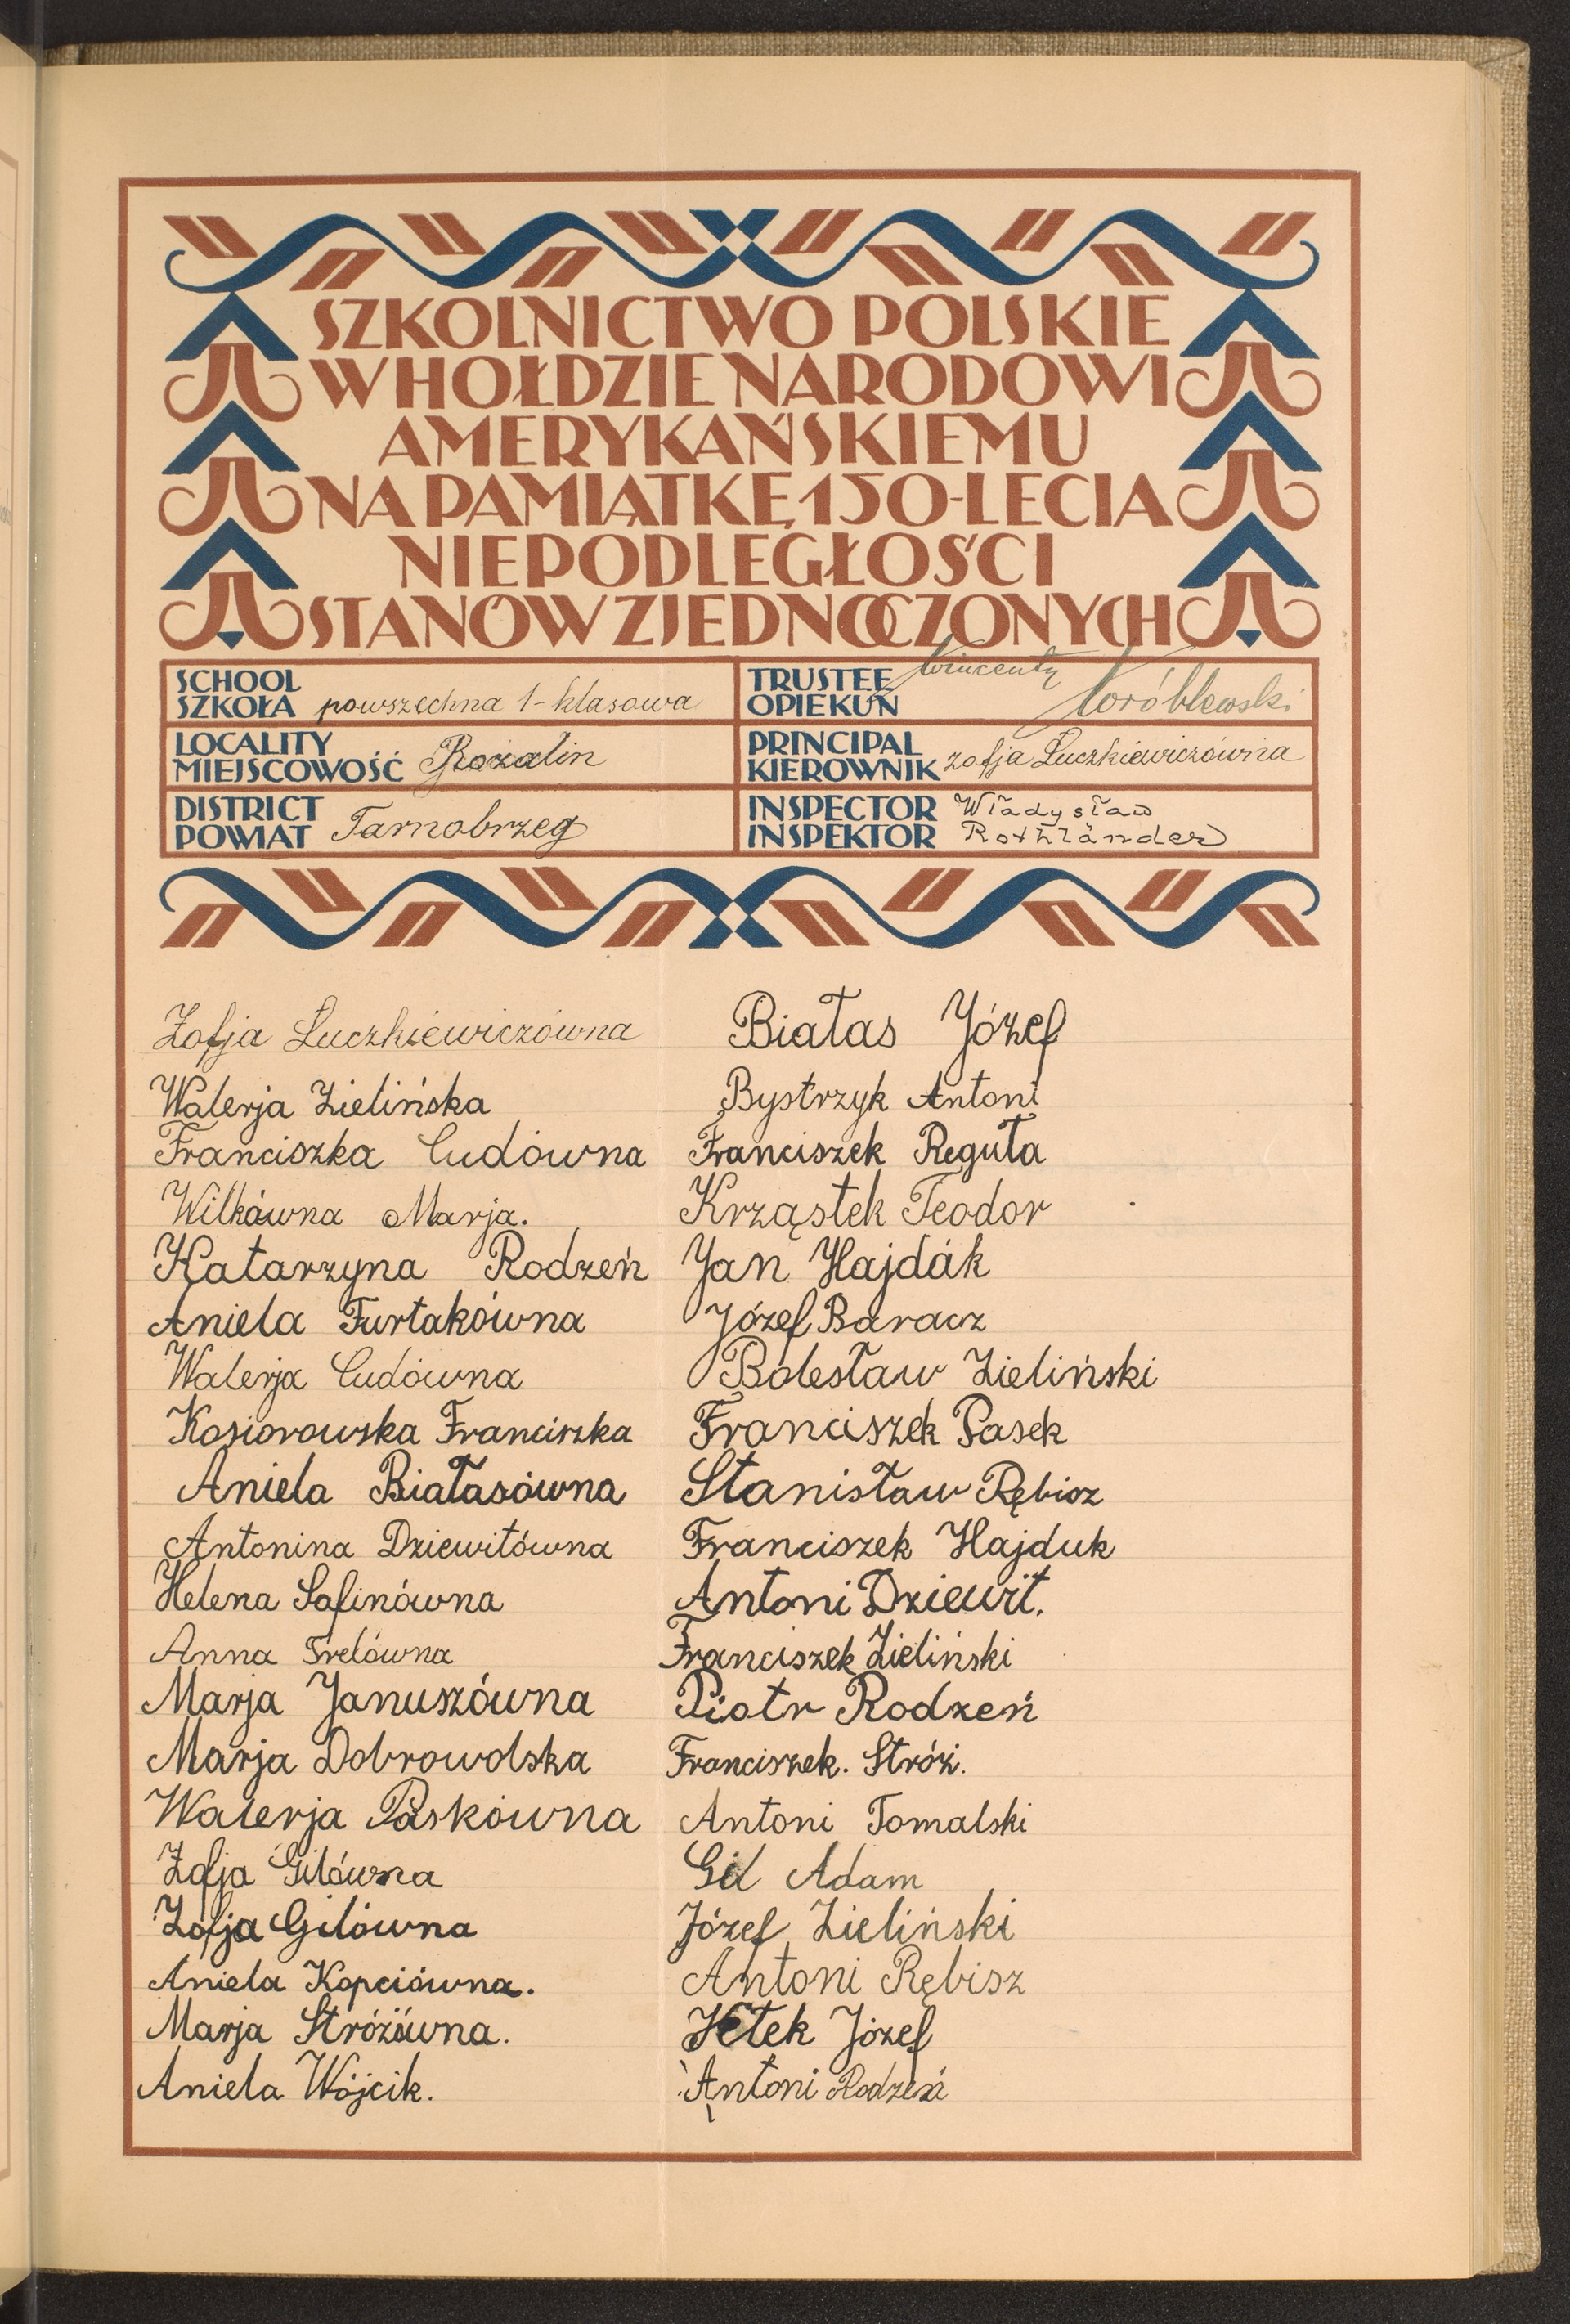 SZKOLNICTWO POLSKIE
W HOŁDZIE NARODOWI
AMERYKAŃSKIEMU
NA PAMIĄTKĘ 150-LECIA
NIEPODLEGŁOŚCI
STANÓW ZJEDNOCZONYCH
SCHOOL
SZKOŁA powszechna 1-klasowa
TRUSTEE
OPIEKUN Wincenty Wróblewski
LOCALITY
MIEJSCOWOŚĆ Rozalin
PRINCIPAL
KIEROWNIK Zofja Łuczkiewiczówna
DISTRICT
POWIAT Tarnobrzeg
INSPECTOR Władysław
INSPEKTOR Rothländer
Zofja Łuczkiewiczówna
Walerja Zielińska
Franciszka Cudówna
Wilkówna Marja.
Katarzyna Rodzeń
Aniela Furtakówna
Walerja Cudówna
Kosiorowska Franciszka
Aniela Białasówna
Antonina Dziewitówna
Helena Safinówna
Anna Trelówna
Marja Januszówna
Marja Dobrowolska
Walerja Paskówna
Zofja Gilówna
Zofja Gilówna
Aniela Kopciówna.
Marja Stróżówna.
Aniela Wójcik.
Białas Józef
Bystrzyk Antoni
Franciszek Reguła
Krząstek Teodor
Jan Hajdák
Józef Baracz
Bolesław Zieliński
Franciszek Pasek
Stanisław Rębisz
Franciszek Hajduk
Antoni Dziewit.
Franciszek Zieliński
Piotr Rodzeń
Franciszek. Stróż.
Antoni Tomalski
Gil Adam
Józef Zieliński
Antoni Rębisz
Józef
Antoni Rodzeń